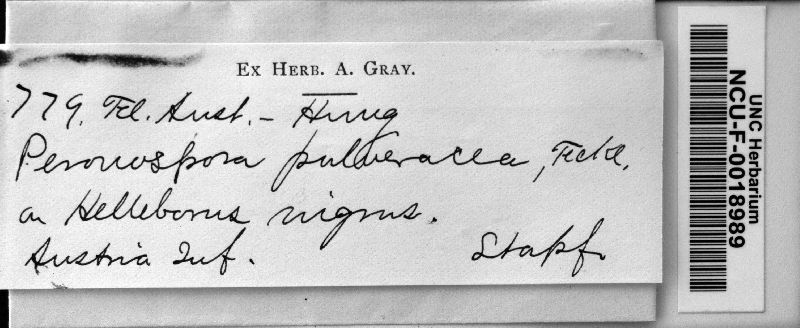 Ex Herb. A. Gray.
779. Fl. Aust. - Hung
Peronospora pulveracea, Fckl.
on Helleborus nigrus.
Austria Inf.
Stapf.
UNC Herbarium
NCU-F-0018989